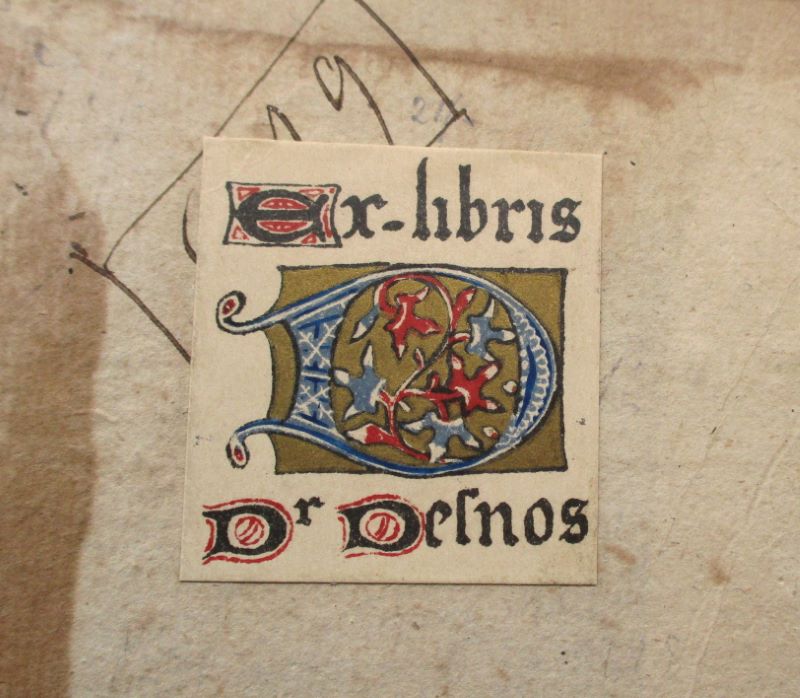 Ex-libris
D
Dr Deſnos